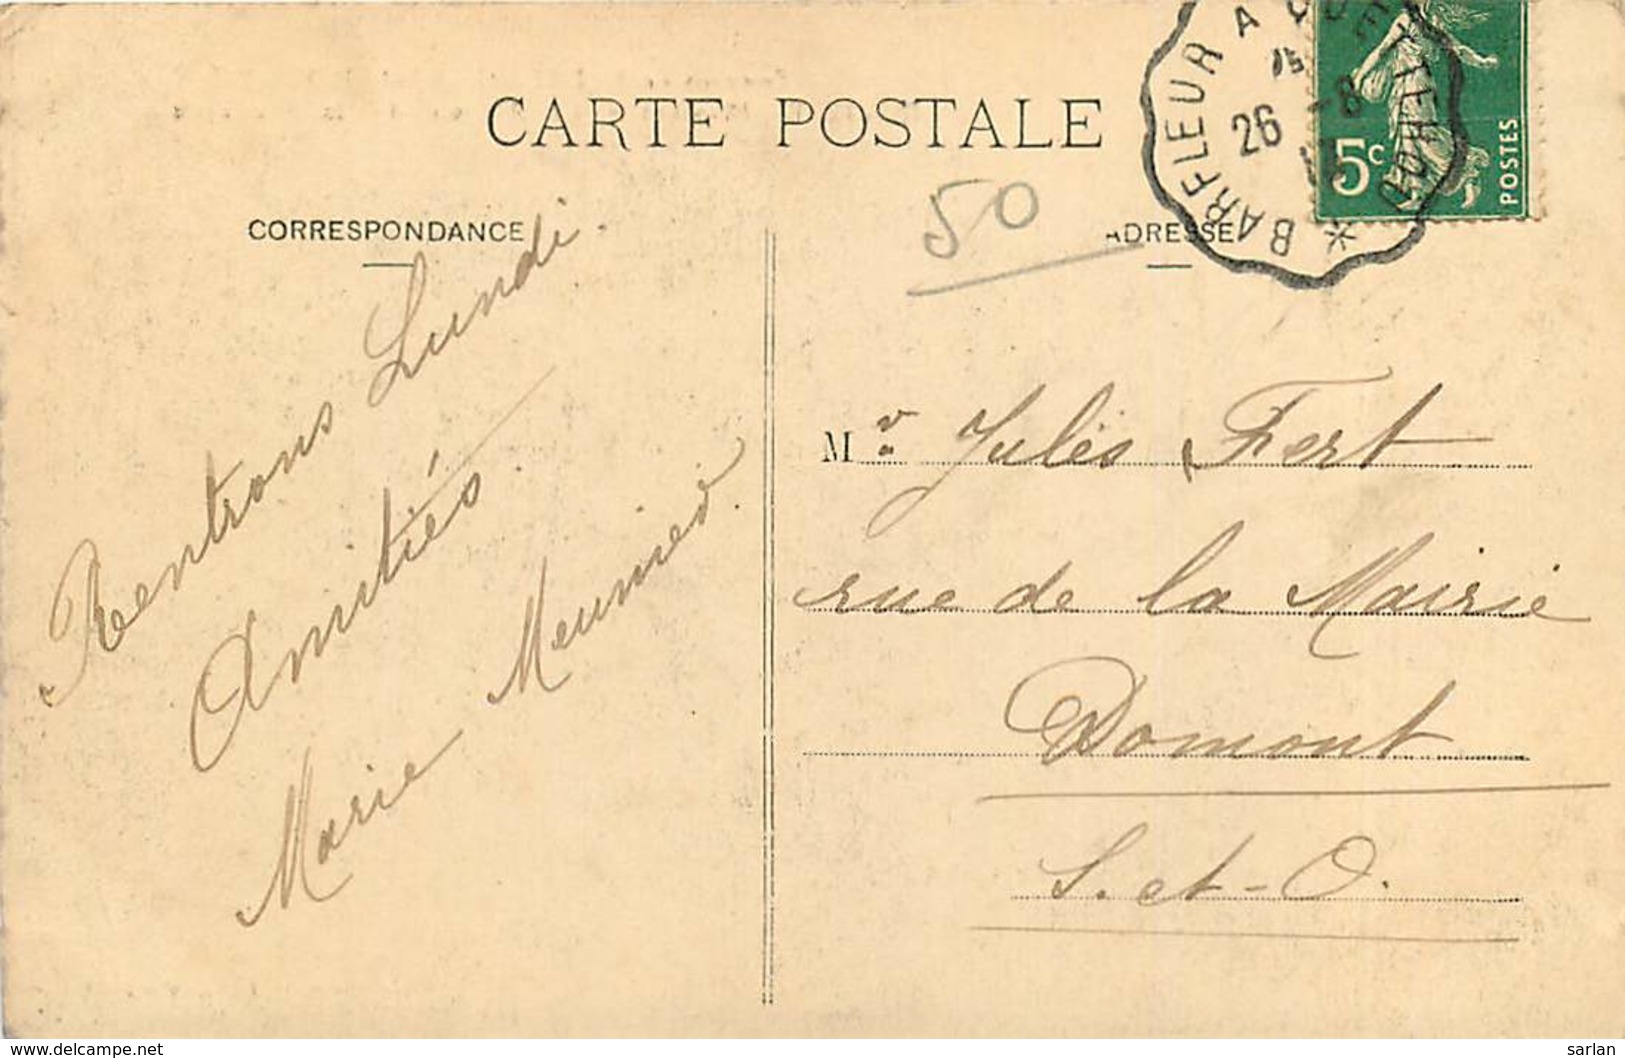 CARTE POSTALE
CORRESPONDANCE
ADRESSE
BARFLEUR A QUETTEHOU
26 -8
5c
POSTES
50
Rentrons Lundi.
Amitiés
Marie Meunier.
Mr Jules Fert
rue de la Mairie
Domont
S.-et-O.
www.delcampe.net
sarlan